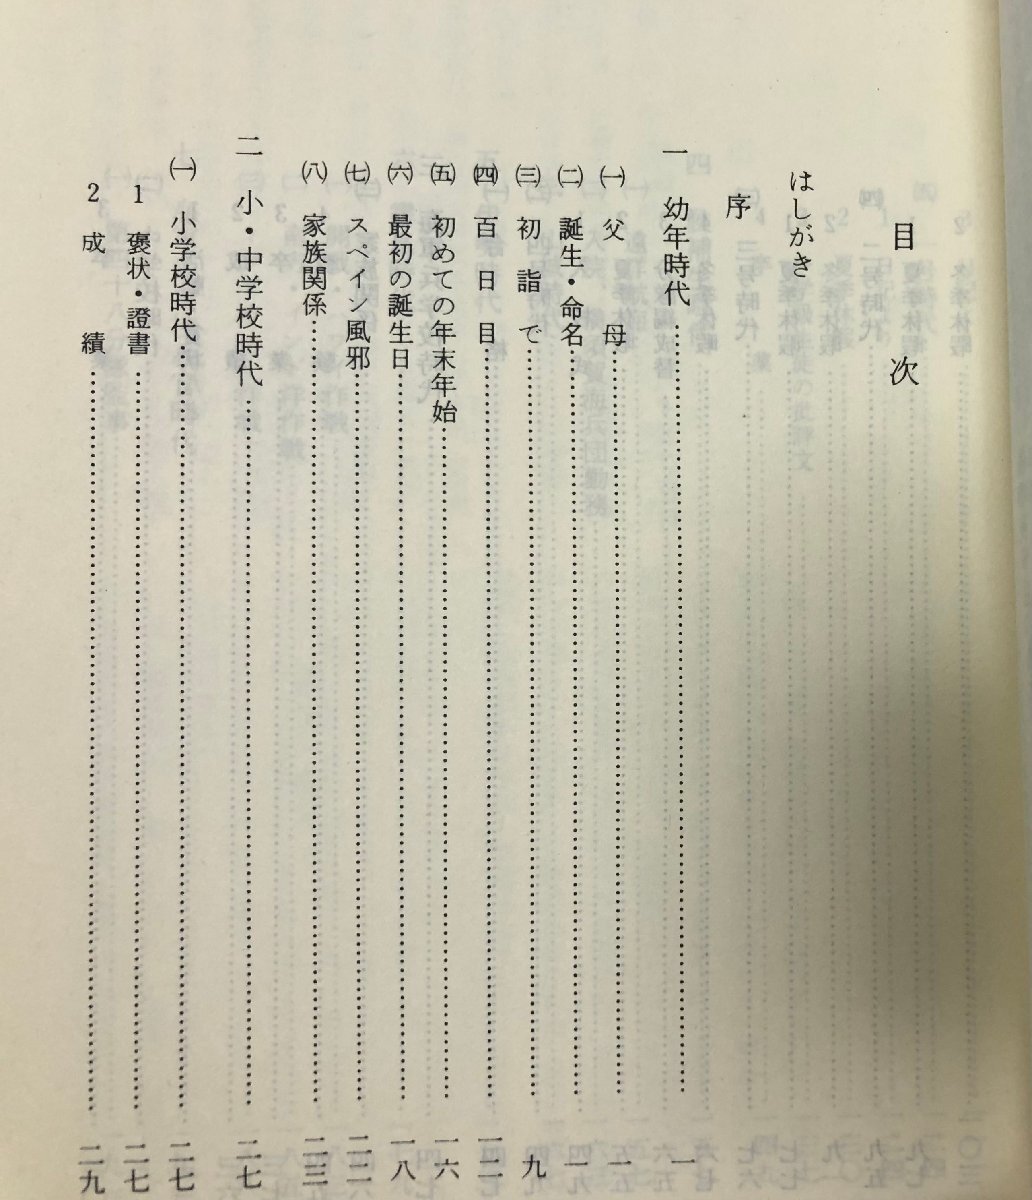 目次
はしがき
序
一 幼年時代……一
㈠ 父母……一
㈡ 誕生・命名……一
㈢ 初詣で……九
㈣ 百日目……一二
㈤ 初めての年末年始……一六
㈥ 最初の誕生日……一八
㈦ スペイン風邪……二二
㈧ 家族関係……二三
二 小・中学校時代……二七
㈠ 小学校時代……二七
1 褒状・證書……二七
2 成績……二九